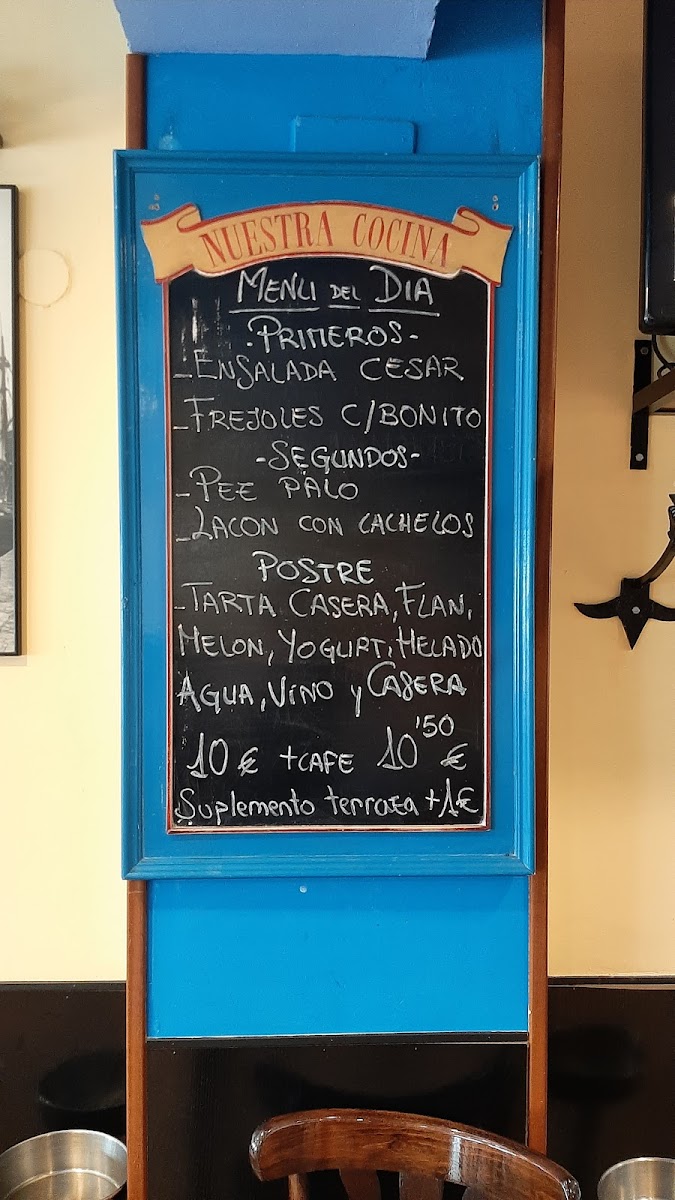 NUESTRA COCINA
MENU DEL DIA
-PRIMEROS-
-ENSALADA CESAR
-FREJOLES C/BONITO
-SEGUNDOS-
-PEZ PALO
-LACON CON CACHELOS
POSTRE
-TARTA CASERA, FLAN,
MELON, YOGURT, HELADO
AGUA, VINO y CASERA
10€ +CAFE 10'50€
Suplemento terraza +1€